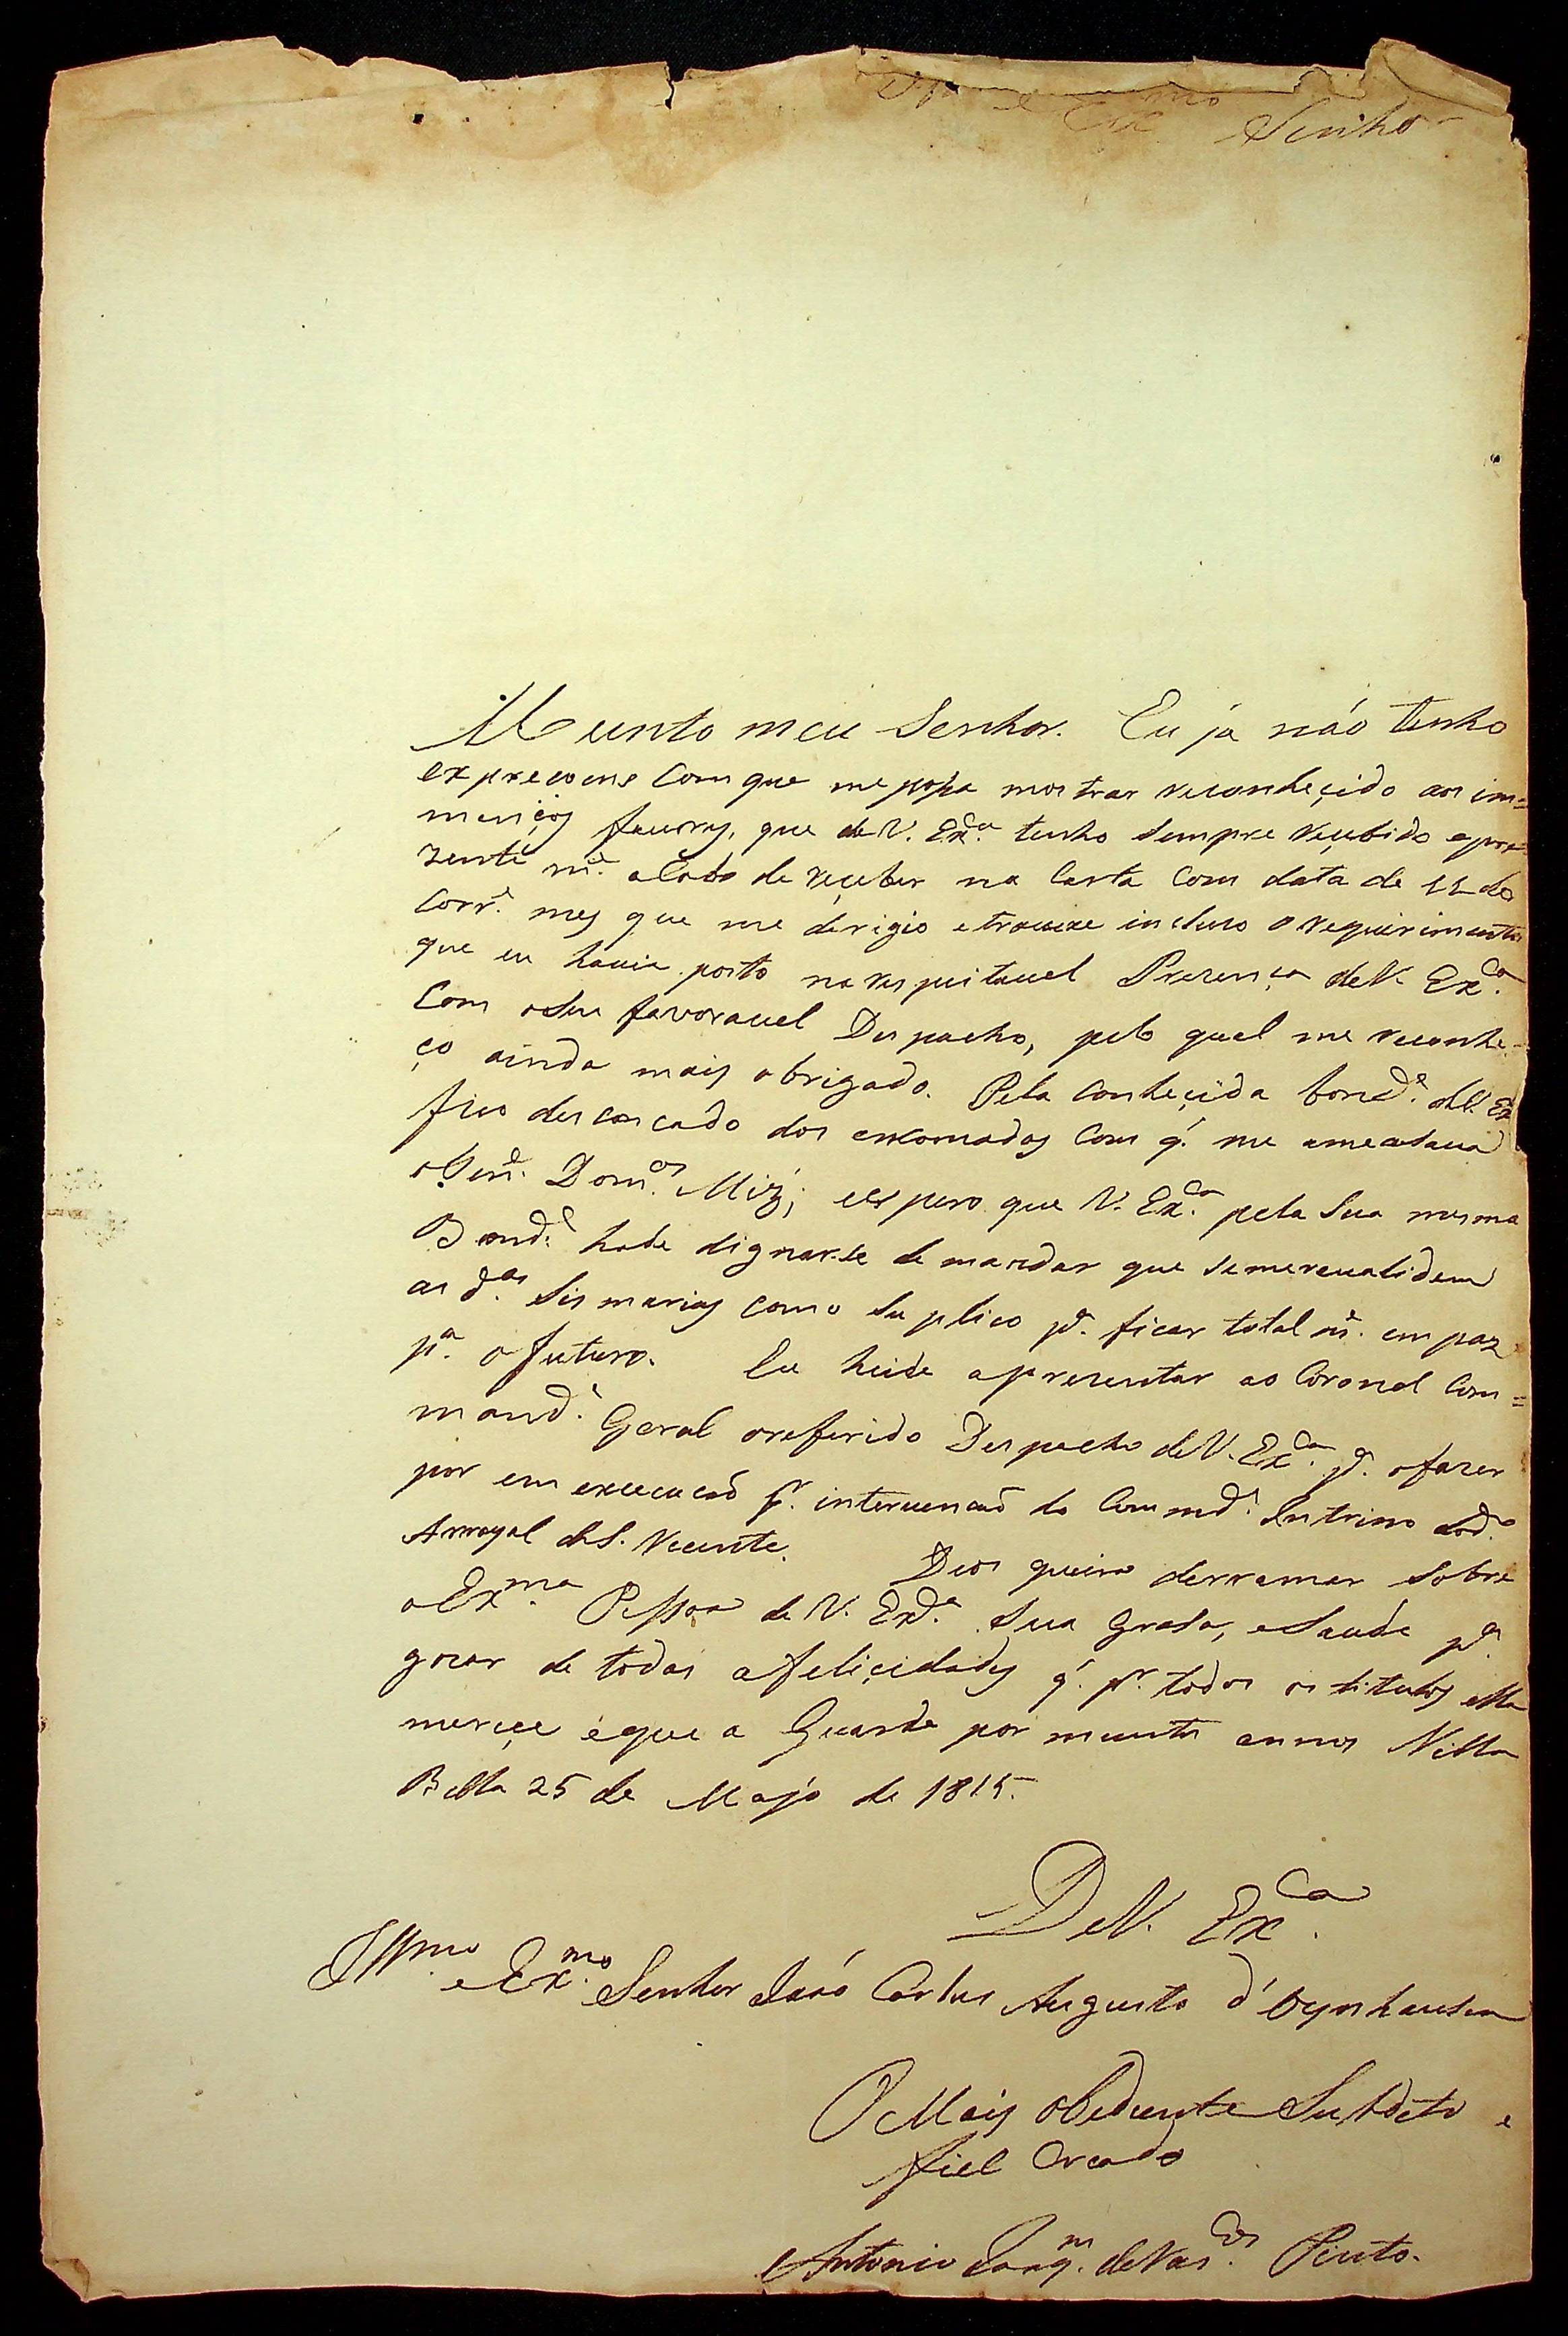 Senhor
Munto meu Senhor. Eu ja não tenho
expreçoens Com que me possa mostrar reconheçido aos im=
menços fauores, que de V. Ex.ca tenho Sempre reçebido e pre=
zente m.e acabo de reçeber na Carta Com data de 11 do
Corr.e mes que me derigio e trouxe incluso o requirimento
que eu hauia posto na respeitauel Prezença de V. Ex.ca
Com o Seu favorauel Despacho, pelo qual me reconhe=
ço ainda mais obrigado. Pela Conheçida bond.e de V. Ex.
fico descancado dos encomados Com q' me ameaSaua
o Ten.e Dom.os Miz; e espero que V. Ex.ca pela Sua mesma
Bond.e hade dignarse de mandar que se me reualidem
as d.as Sismarias como Suplico p.a ficar total m.e em paz
p.a o futuro. Eu heide aprezentar ao Coronel Com=
mand.e Geral o referido Despacho de V. Ex.ca p.a o fazer
por em execucaõ p.r interuencaõ do Commd.e Intrino do d.o
Arrayal de S. Vicente. Deos queira derramar Sobre
a Ex.ma Pessoa de V. Ex.ca Sua GraSa, e Saude p.a
gozar de todas a feliçidades q' p.r todos os titulos ella
mereçe e que a Guarde por muntos annos Villa
Bella 25 de Majo de 1815.
De V. Ex.ca
Illmo e Ex.mo Senhor Joaõ Carlos Augusto d'Oynhausen
O Mais obediente Subdeto e
fiel Creado
Antonio Joaq.m de Vas.cos Pinto.